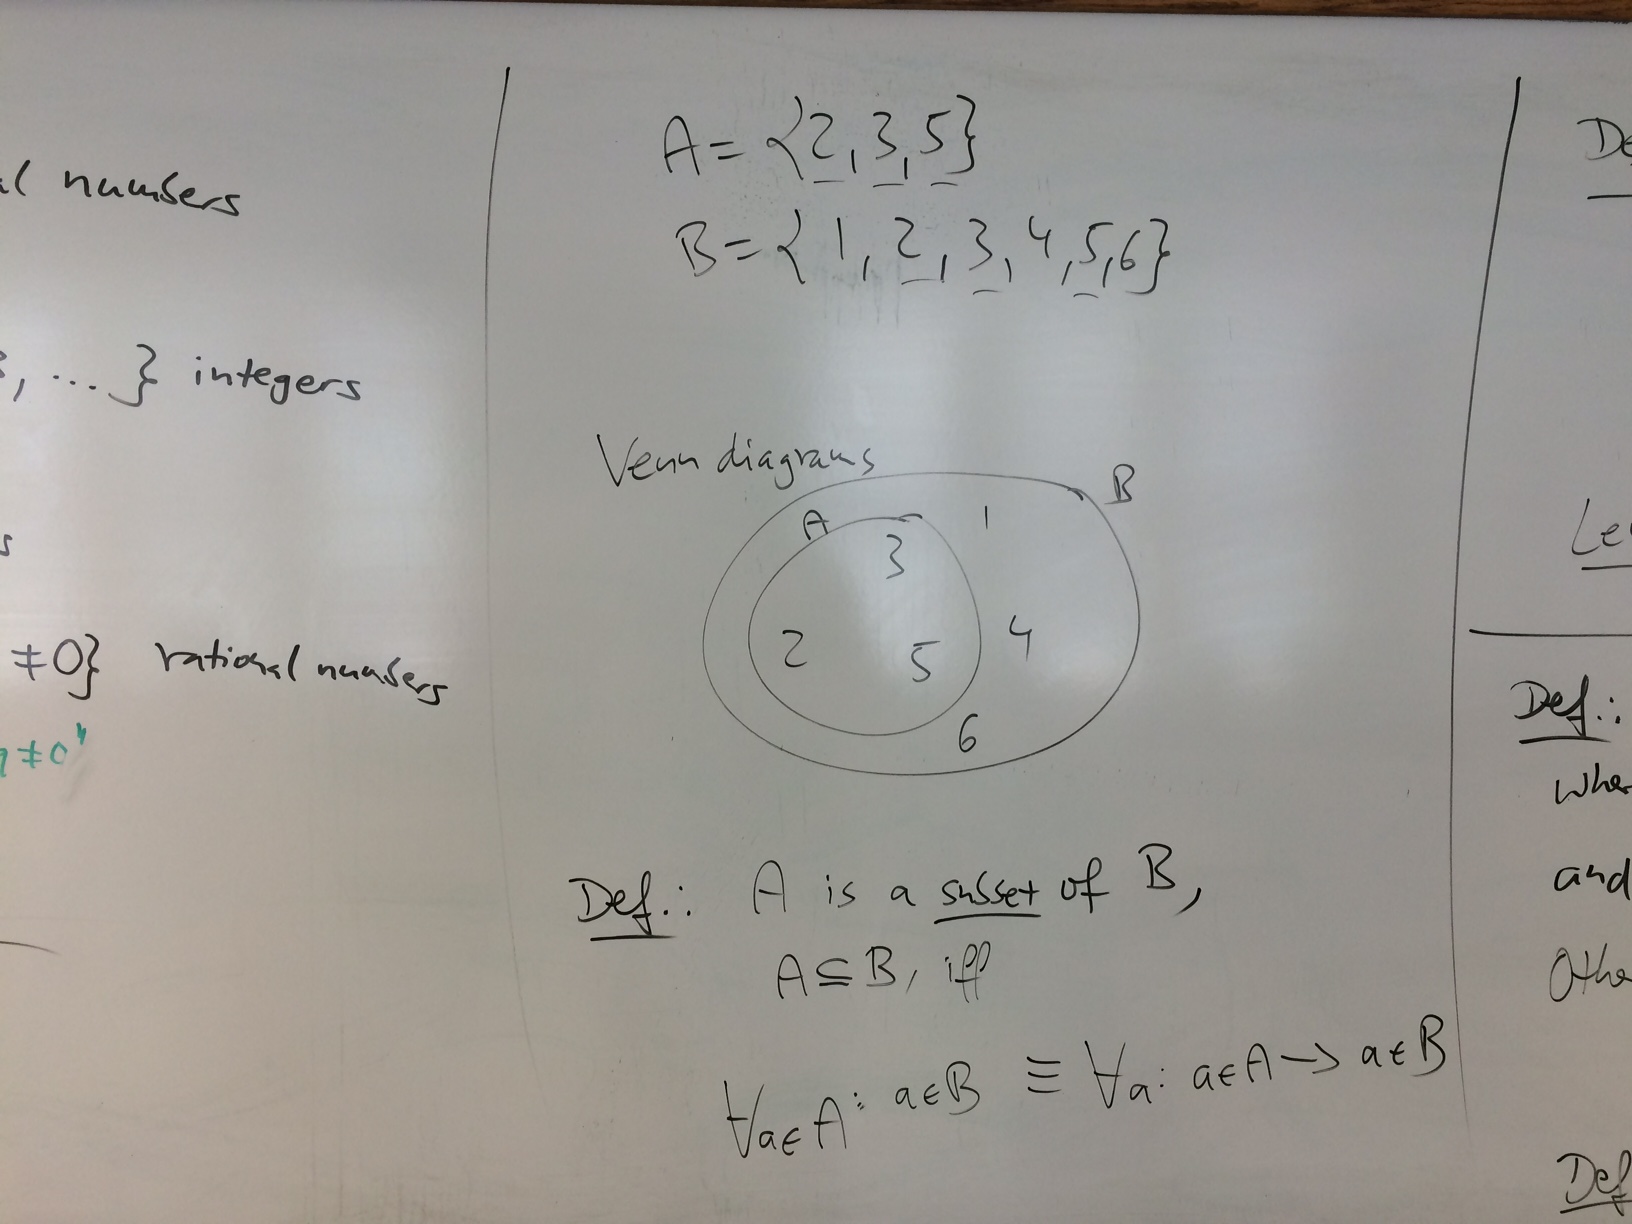 numbers
, ... } integers
≠0} rational numbers
≠0"
A = {2, 3, 5}
B = { 1, 2, 3, 4, 5, 6}
Venn diagrams
B
A
1
3
2
5
4
6
Def.: A is a subset of B,
A ⊆ B, iff
∀a∈A: a∈B ≡ ∀a: a∈A → a∈B
Def.:
and
Def